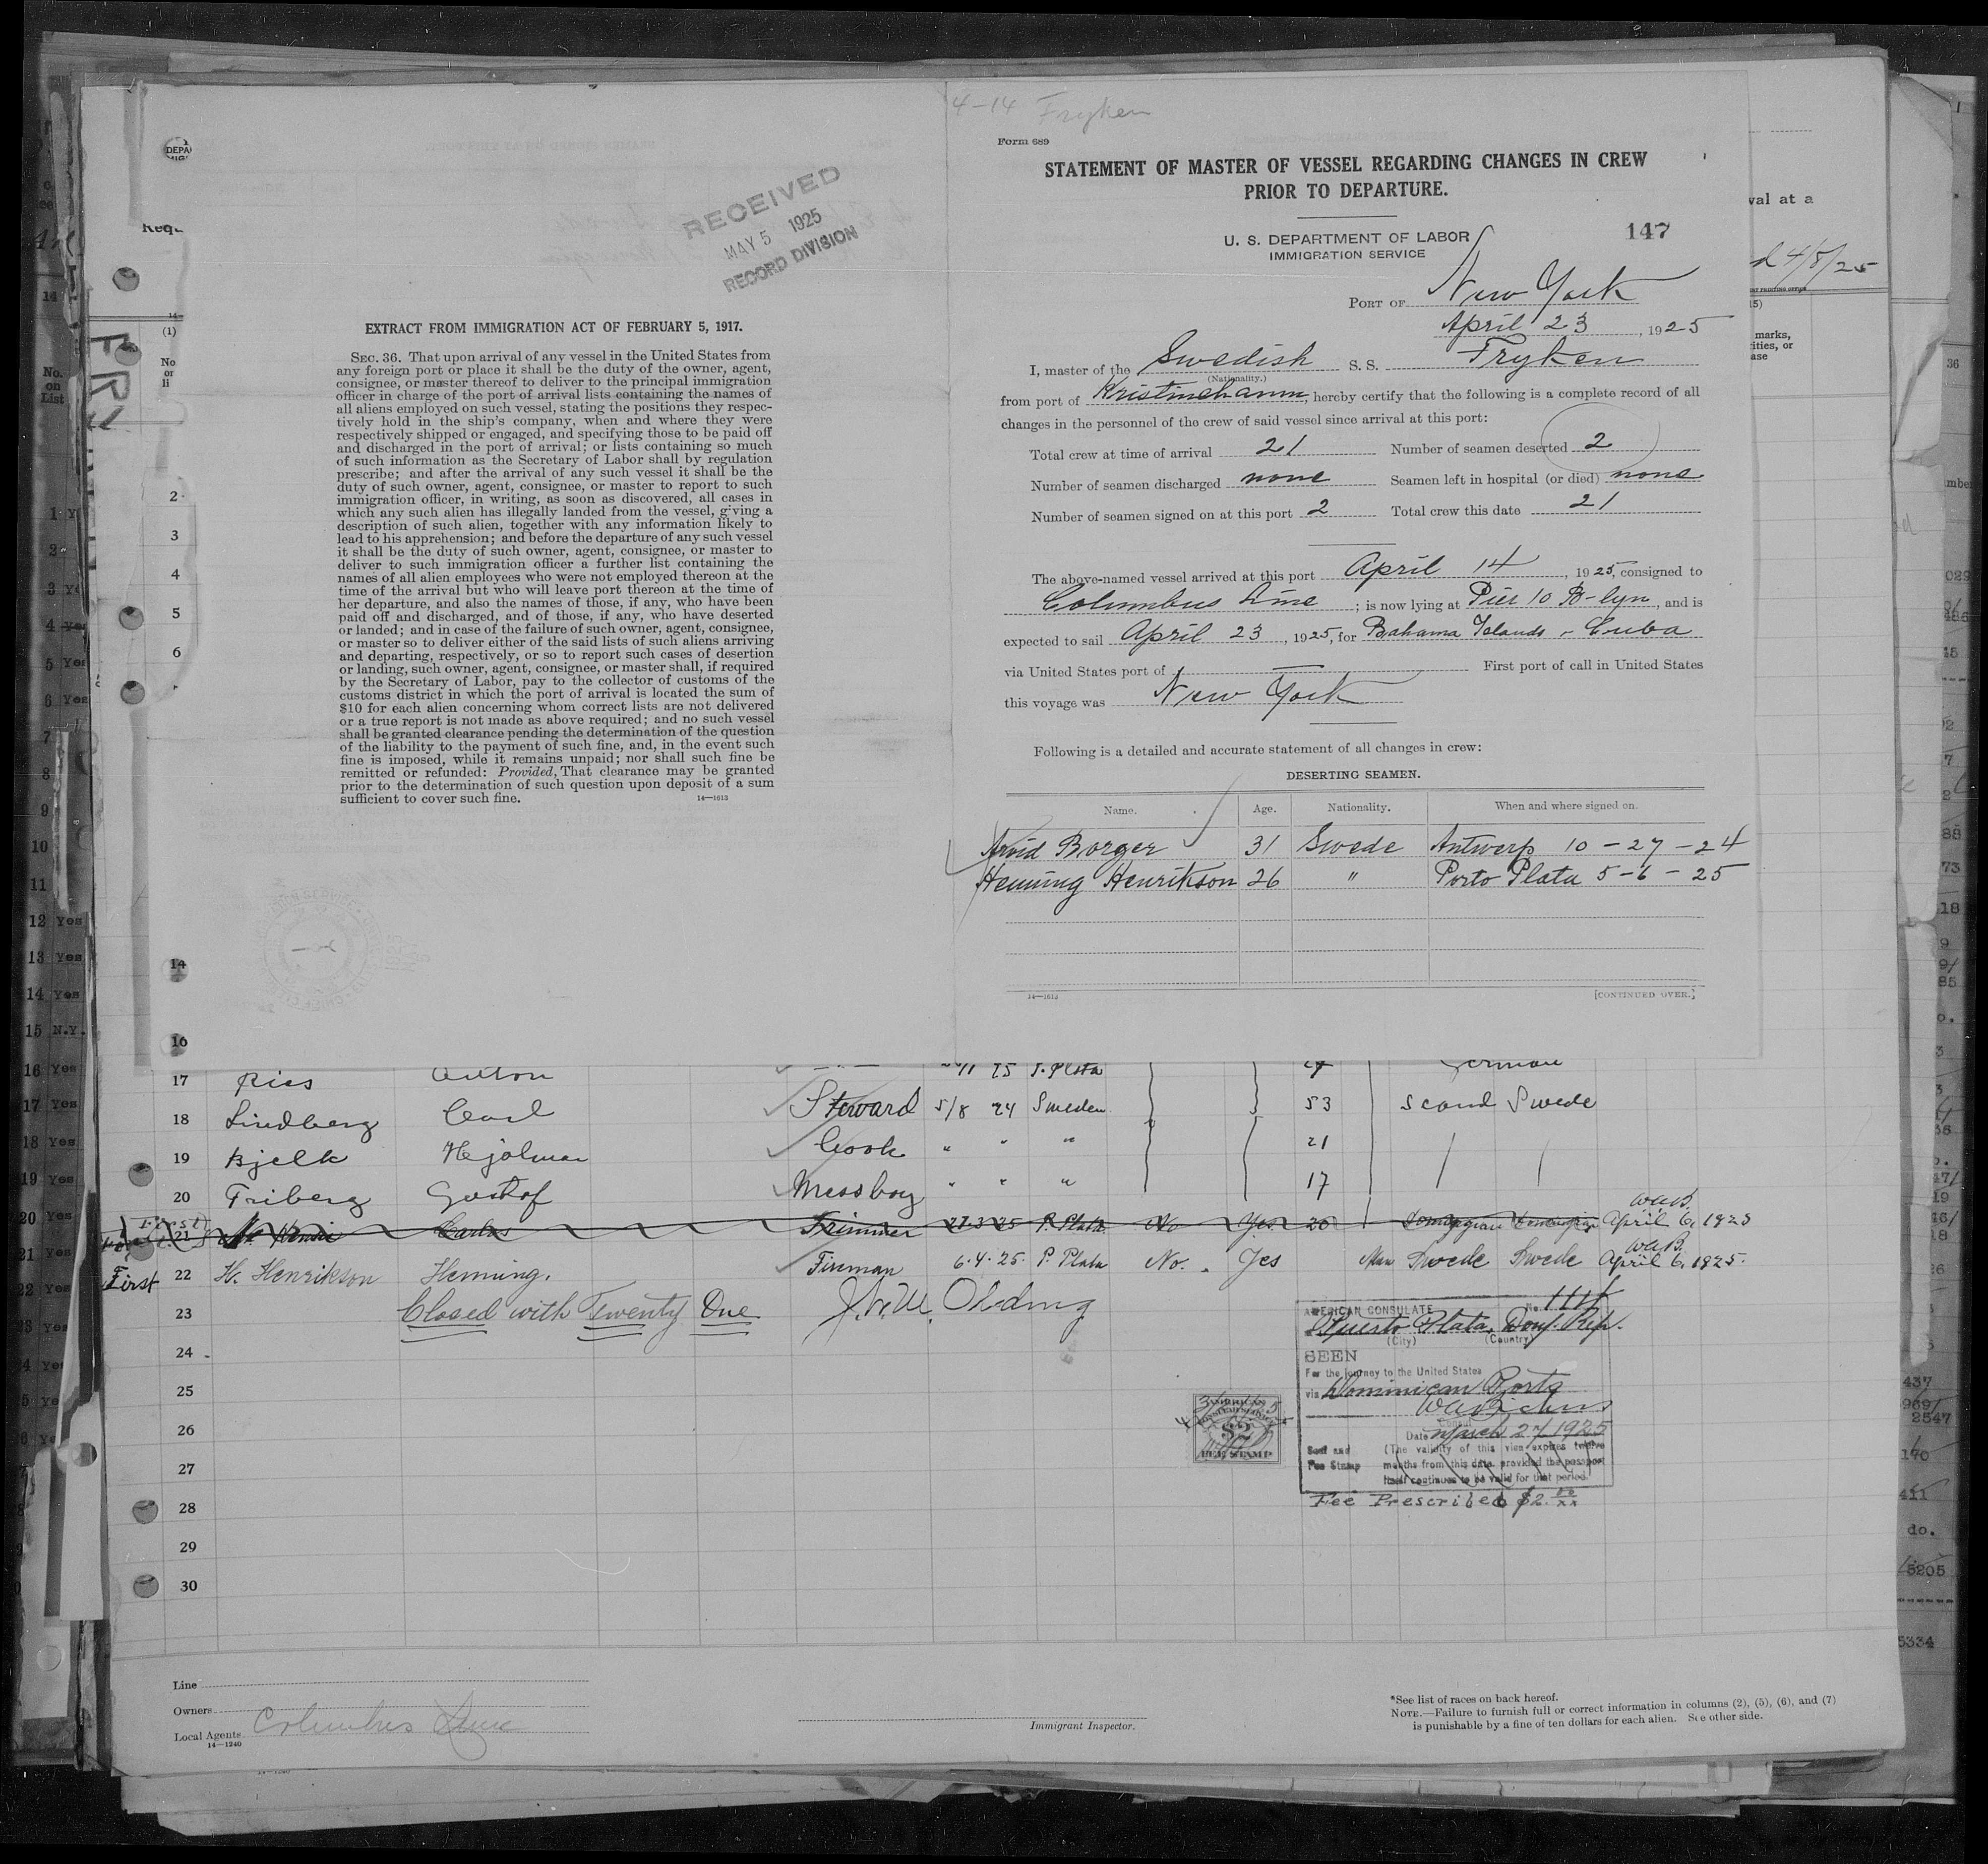 4-14 Fryken
Form 689
STATEMENT OF MASTER OF VESSEL REGARDING CHANGES IN CREW
PRIOR TO DEPARTURE.
U. S. DEPARTMENT OF LABOR
IMMIGRATION SERVICE
147
PORT OF New York
April 23, 1925
I, master of the Swedish S. S. Fryken
(Nationality.)
from port of Kristinehamn, hereby certify that the following is a complete record of all
changes in the personnel of the crew of said vessel since arrival at this port:
Total crew at time of arrival 21 Number of seamen deserted 2
Number of seamen discharged none Seamen left in hospital (or died) none
Number of seamen signed on at this port 2 Total crew this date 21
The above-named vessel arrived at this port April 14, 1925, consigned to
Columbus Line; is now lying at Pier 10 B-lyn, and is
expected to sail April 23, 1925, for Bahama Islands - Cuba
via United States port of — First port of call in United States
this voyage was New York
Following is a detailed and accurate statement of all changes in crew:
DESERTING SEAMEN.
Name. Age. Nationality. When and where signed on.
Arvid Borger 31 Swede Antwerp 10-27-24
Henning Henrikson 26 " Porto Plata 5-6-25
14—1613 [CONTINUED OVER.]
RECEIVED
MAY 5 1925
RECORD DIVISION
EXTRACT FROM IMMIGRATION ACT OF FEBRUARY 5, 1917.
SEC. 36. That upon arrival of any vessel in the United States from
any foreign port or place it shall be the duty of the owner, agent,
consignee, or master thereof to deliver to the principal immigration
officer in charge of the port of arrival lists containing the names of
all aliens employed on such vessel, stating the positions they respec-
tively hold in the ship's company, when and where they were
respectively shipped or engaged, and specifying those to be paid off
and discharged in the port of arrival; or lists containing so much
of such information as the Secretary of Labor shall by regulation
prescribe; and after the arrival of any such vessel it shall be the
duty of such owner, agent, consignee, or master to report to such
immigration officer, in writing, as soon as discovered, all cases in
which any such alien has illegally landed from the vessel, giving a
description of such alien, together with any information likely to
lead to his apprehension; and before the departure of any such vessel
it shall be the duty of such owner, agent, consignee, or master to
deliver to such immigration officer a further list containing the
names of all alien employees who were not employed thereon at the
time of the arrival but who will leave port thereon at the time of
her departure, and also the names of those, if any, who have been
paid off and discharged, and of those, if any, who have deserted
or landed; and in case of the failure of such owner, agent, consignee,
or master so to deliver either of the said lists of such aliens arriving
and departing, respectively, or so to report such cases of desertion
or landing, such owner, agent, consignee, or master shall, if required
by the Secretary of Labor, pay to the collector of customs of the
customs district in which the port of arrival is located the sum of
$10 for each alien concerning whom correct lists are not delivered
or a true report is not made as above required; and no such vessel
shall be granted clearance pending the determination of the question
of the liability to the payment of such fine, and, in the event such
fine is imposed, while it remains unpaid; nor shall such fine be
remitted or refunded: Provided, That clearance may be granted
prior to the determination of such question upon deposit of a sum
sufficient to cover such fine.
14—1613
17 Ries Anton P. Plata German
18 Lindberg Carl Steward 5/8 24 Sweden 53 Scand Swede
19 Bjelk Hjalmar Cook " " " 21
20 Friberg Gustof Messboy " " " 17
21 Carlos Trimmer 27-3-25 P. Plata No Yes 20 April 6, 1925
First 22 H. Henrikson Henning. Fireman 6-4-25. P. Plata No. Yes Swede Swede April 6, 1925.
23 Closed with Twenty One
24
25
26
27
28
29
30
AMERICAN CONSULATE No. 1114
Puerto Plata, Dom. Rep.
(City) (Country)
SEEN
For the journey to the United States
via Dominican Ports
Date March 27 1925
Seal and (The validity of this visa expires twelve
Fee Stamp months from this date provided the passport
itself continues to be valid for that period.
Fee Prescribed $2.00
$2
FEE STAMP
Line
Owners
Local Agents Columbus Line
14—1240
Immigrant Inspector.
*See list of races on back hereof.
NOTE.—Failure to furnish full or correct information in columns (2), (5), (6), and (7)
is punishable by a fine of ten dollars for each alien. See other side.